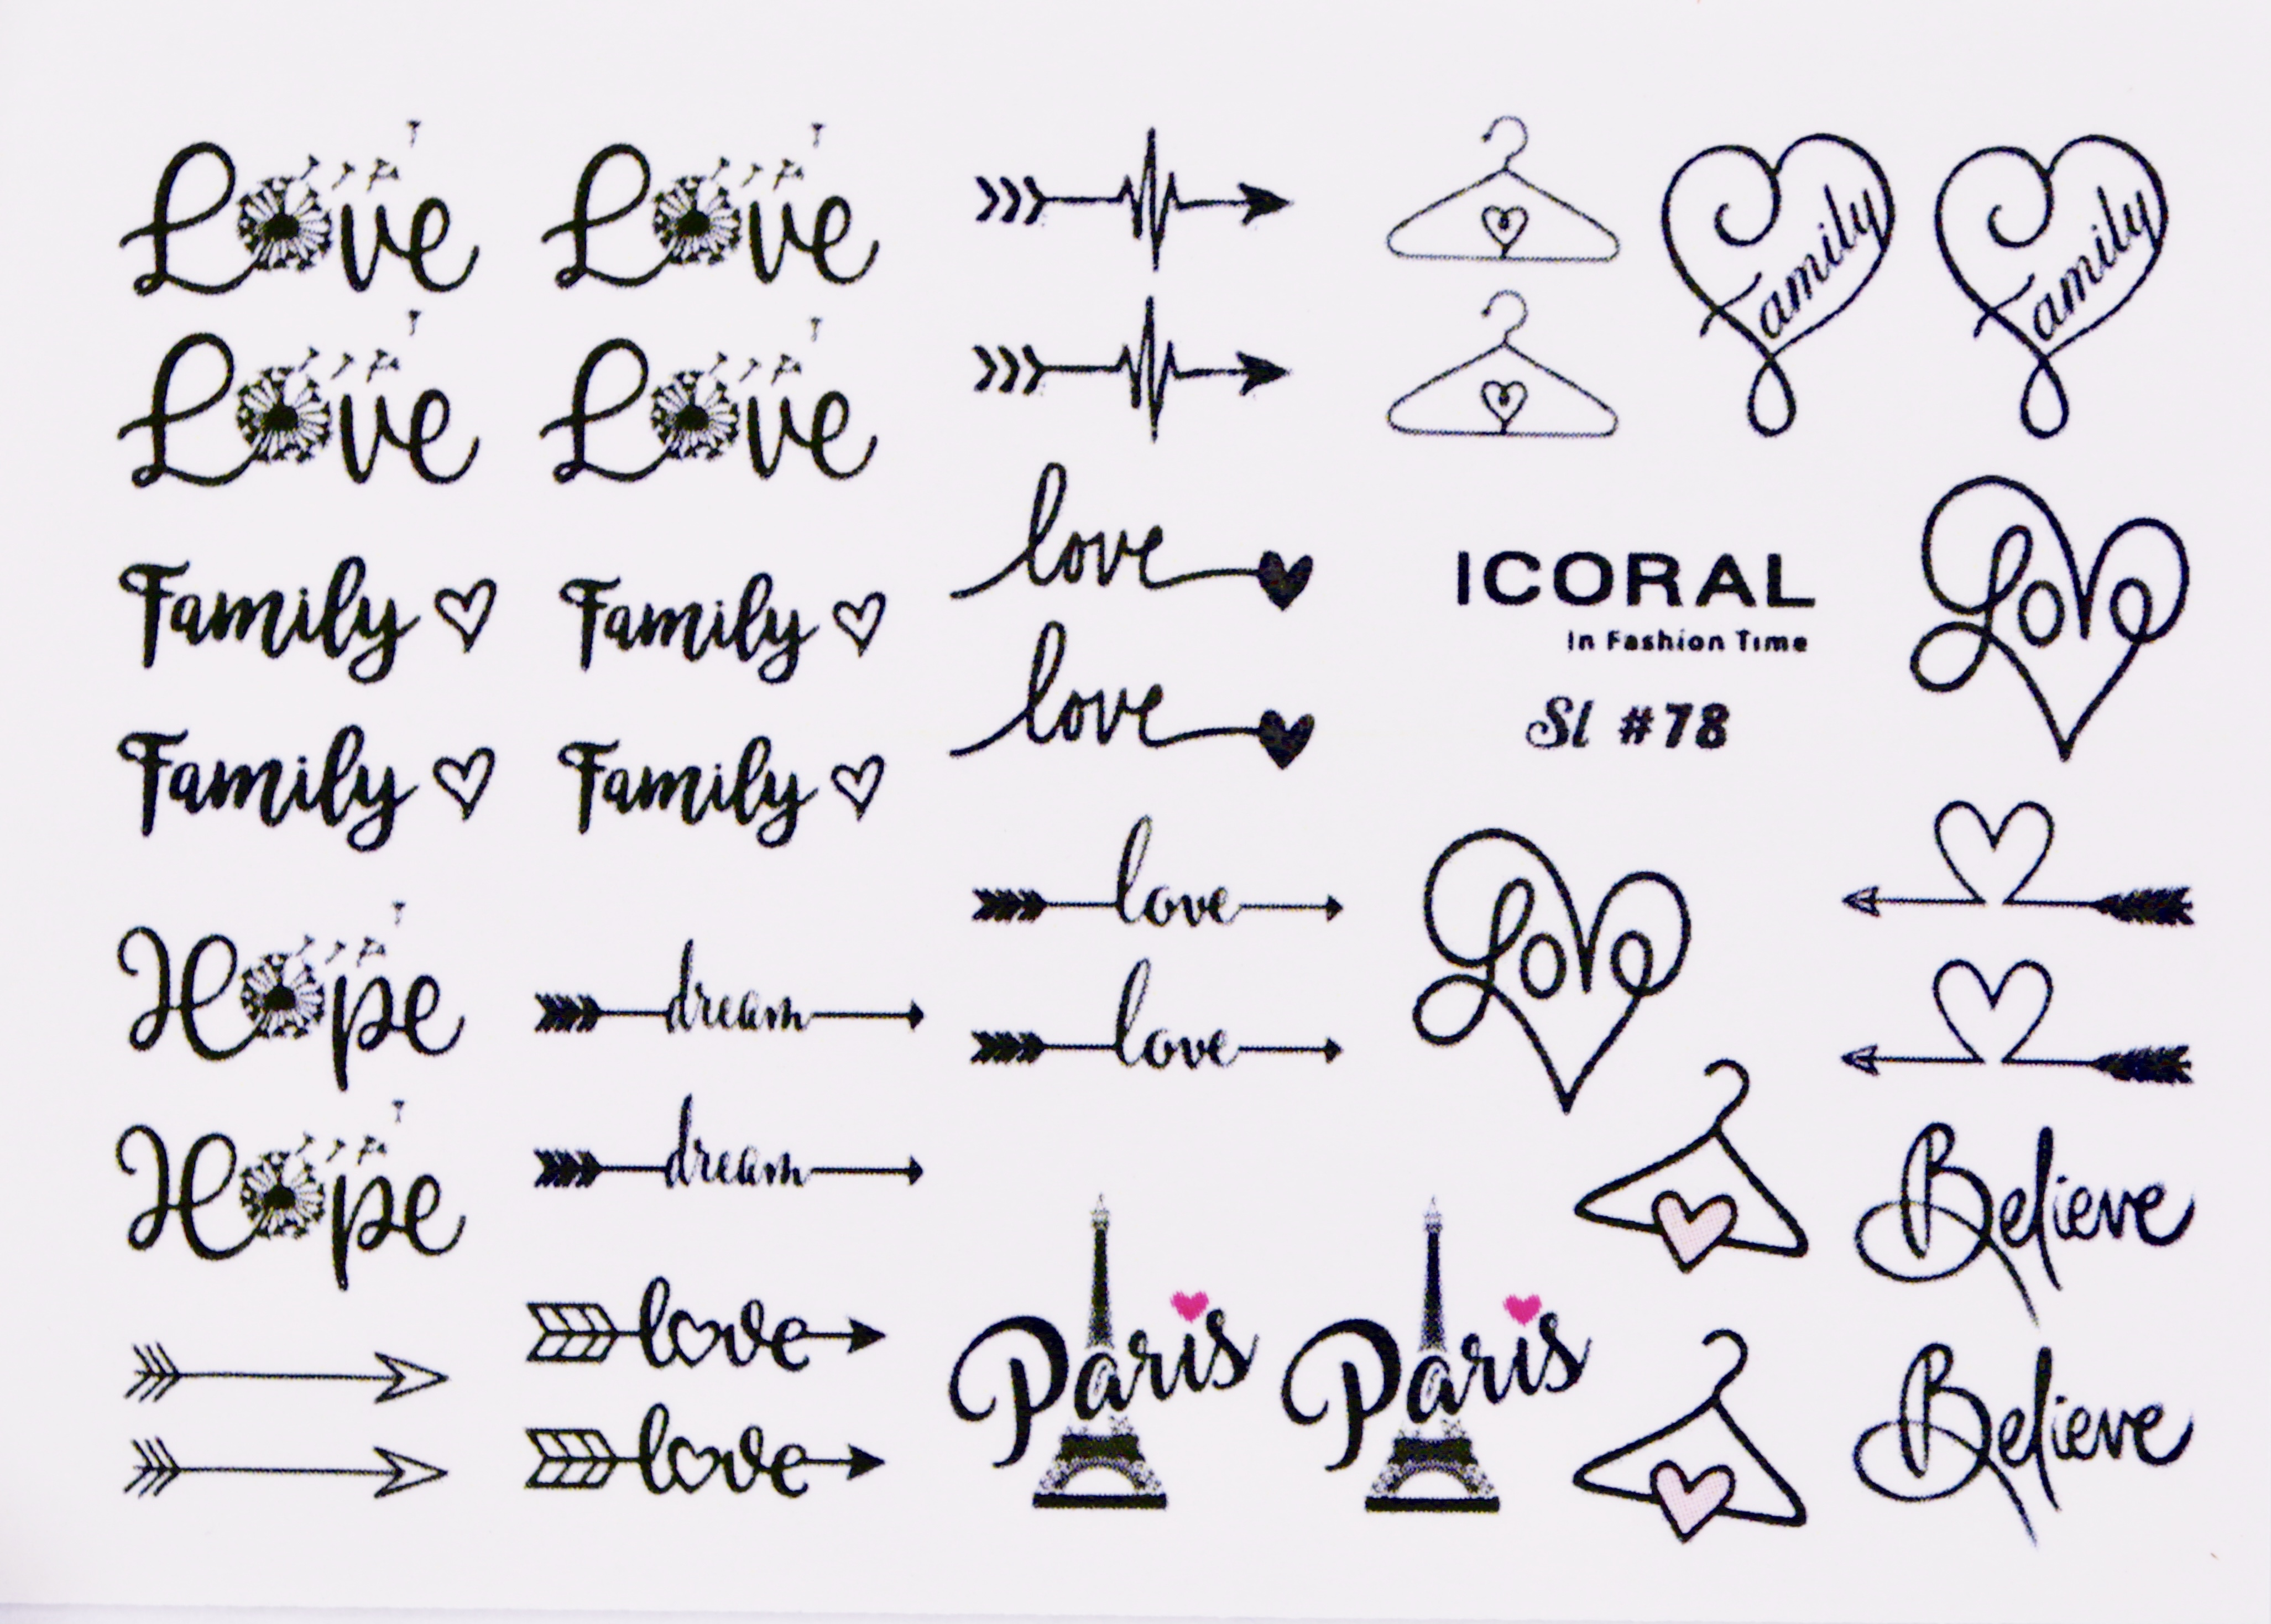 Love
Love
Family
Family
Love
Love
love
Family ♡
Family ♡
ICORAL
In Fashion Time
Love
love
Sl #78
Family ♡
Family ♡
love
Love
Hope
dream
love
Hope
dream
Believe
love
Paris
Paris
love
Believe